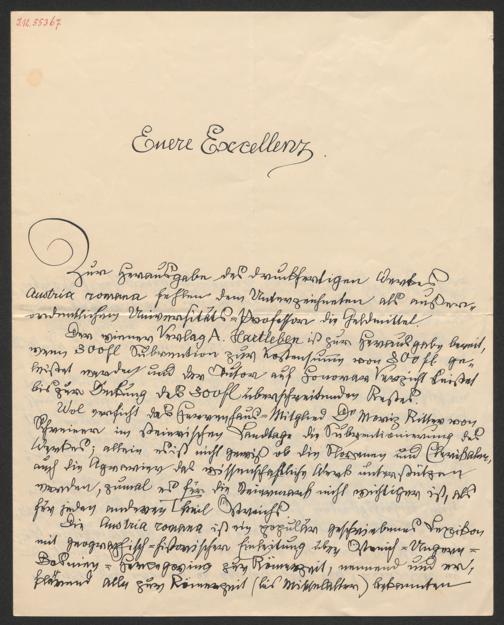 I.N. 55367
Euere Excellenz
Zur Herausgabe des druckfertigen Werkes
Austria romana fehlen dem Unterzeichneten als außer-
ordentlichem Universitäts-Professor die Geldmittel.
Der wiener Verlag A. Hartleben ist zur Herausgabe bereit,
wenn 300fl Subvention zur Kostensumme von 800fl ge-
leistet werden und der Autor auf Honorar Verzicht leistet
bis zur Deckung des 300fl überschreitenden Restes.
Wol versicht das Herrenhaus-Mitglied Dr Moriz Ritter von
Schreiner im steierischen Landtage die Subventionierung des
Werkes; allein es ist nicht gewiß ob die Slovenen und
auch die Agrarier das wissenschaftliche Werk unterstützen
werden, zumal es für die Steiermark nicht wichtiger ist, als
für jeden anderen Theil Östreichs
Die Austria romana ist ein populär geschriebenes Lexikon
mit geographisch-historischer Einleitung über Östreich-Ungarn-
Bosnien-Herzegovina zur Römerzeit, nennend und er-
klärend alle zur Römerzeit (bis Mittelalter) bekannten